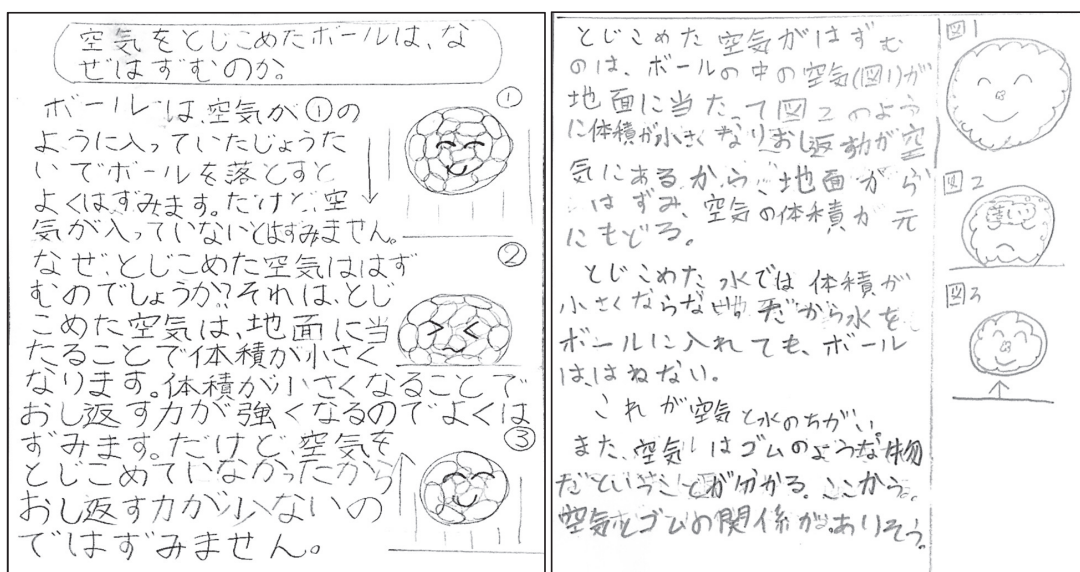 空気をとじこめたボールは、な
ぜはずむのか。
ボールは、空気が①の
ように入っていたじょうた
いでボールを落とすと
よくはずみます。だけど、空
気が入っていないとはずみません。
なぜ、とじこめた空気ははず
むのでしょうか?それは、とじ
こめた空気は、地面に当
たることで体積が小さく
なります。体積が小さくなることで
おし返す力が強くなるのでよくは
ずみます。だけど、空気を
とじこめていなかったから
おし返す力が少ないの
ではずみません。
①
②
③
とじこめた空気がはずむ
のは、ボールの中の空気(図1)が
地面に当たって図2のよう
に体積が小さくなりおし返す力が空
気にあるから、地面から
はずみ、空気の体積が元
にもどる。
とじこめた水では体積が
小さくならない だから水を
ボールに入れても、ボール
は、はねない。
これが空気と水のちがい。
また、空気はゴムのような物
だということが分かる。ここから、
空気とゴムの関係が、ありそう。
図1
図2
図3